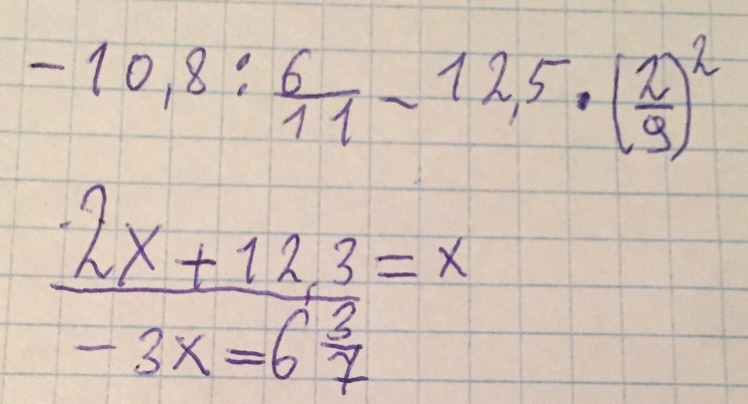 -10,8 : 6/11 - 12,5 · (2/9)²
2x + 12,3 = x
-3x = 6 3/7